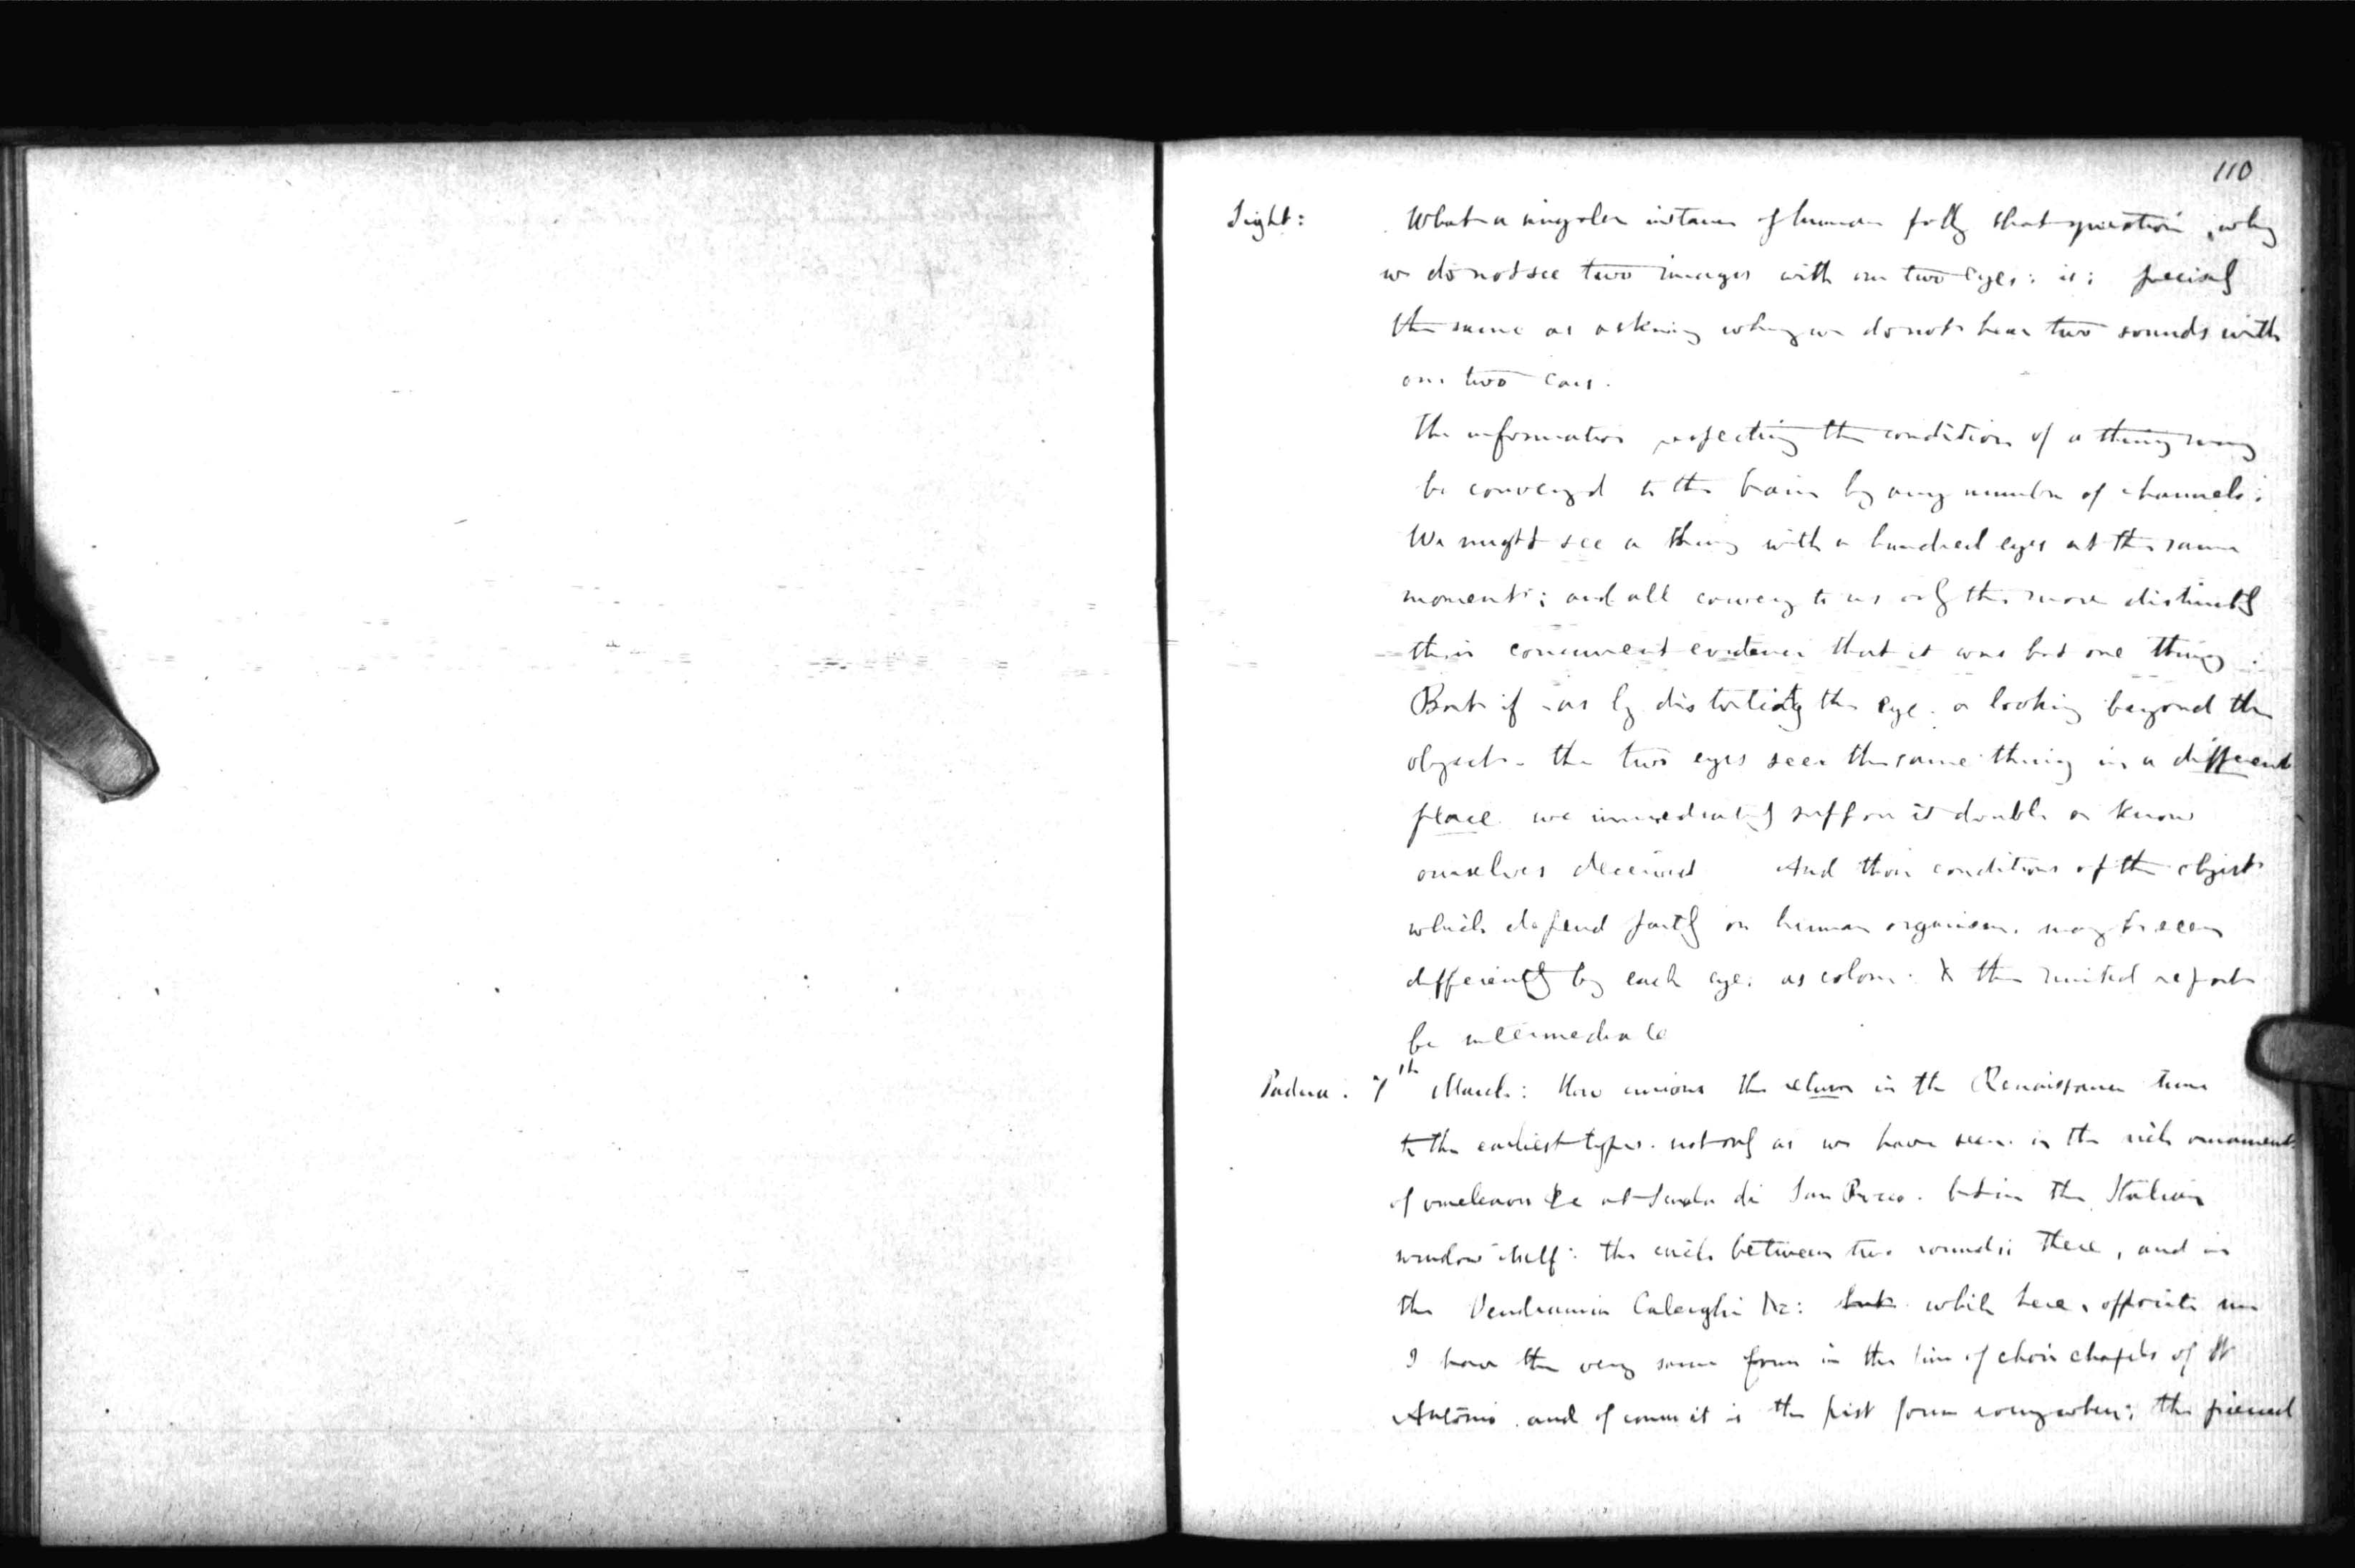 110
Sight: What a singular instance of human folly that question, why
we do not see two images with our two eyes: is: precisely
the same as asking why we do not hear two sounds with
our two ears.
The information respecting the condition of a thing may
be conveyed to the brain by any number of channels:
We might see a thing with a hundred eyes at the same
moment; and all convey to us only the more distinctly
their concurrent evidence that it was but one thing.
But if - as by distorting the eye. or looking beyond the
object - the two eyes see the same thing in a different
place. we immediately suppose it double or know
ourselves deceived And those conditions of the object
which depend partly on human organism. may be seen
differently by each eye. as colour. & the united report
be intermediate
Padua. 7th March: How curious the return in the Renaissance time
to the earliest types. not only as we have seen. in the rich ornament
of &c at Scuola di San Rocco. but in the Italian
window itself: the circle between two rounds: there, and in
the Vendramin Calerghi &c: but which here, opposite me
I have the very same form in the line of choir chapels of St
Antonio. and of course it is the first form everywhere: the pierced